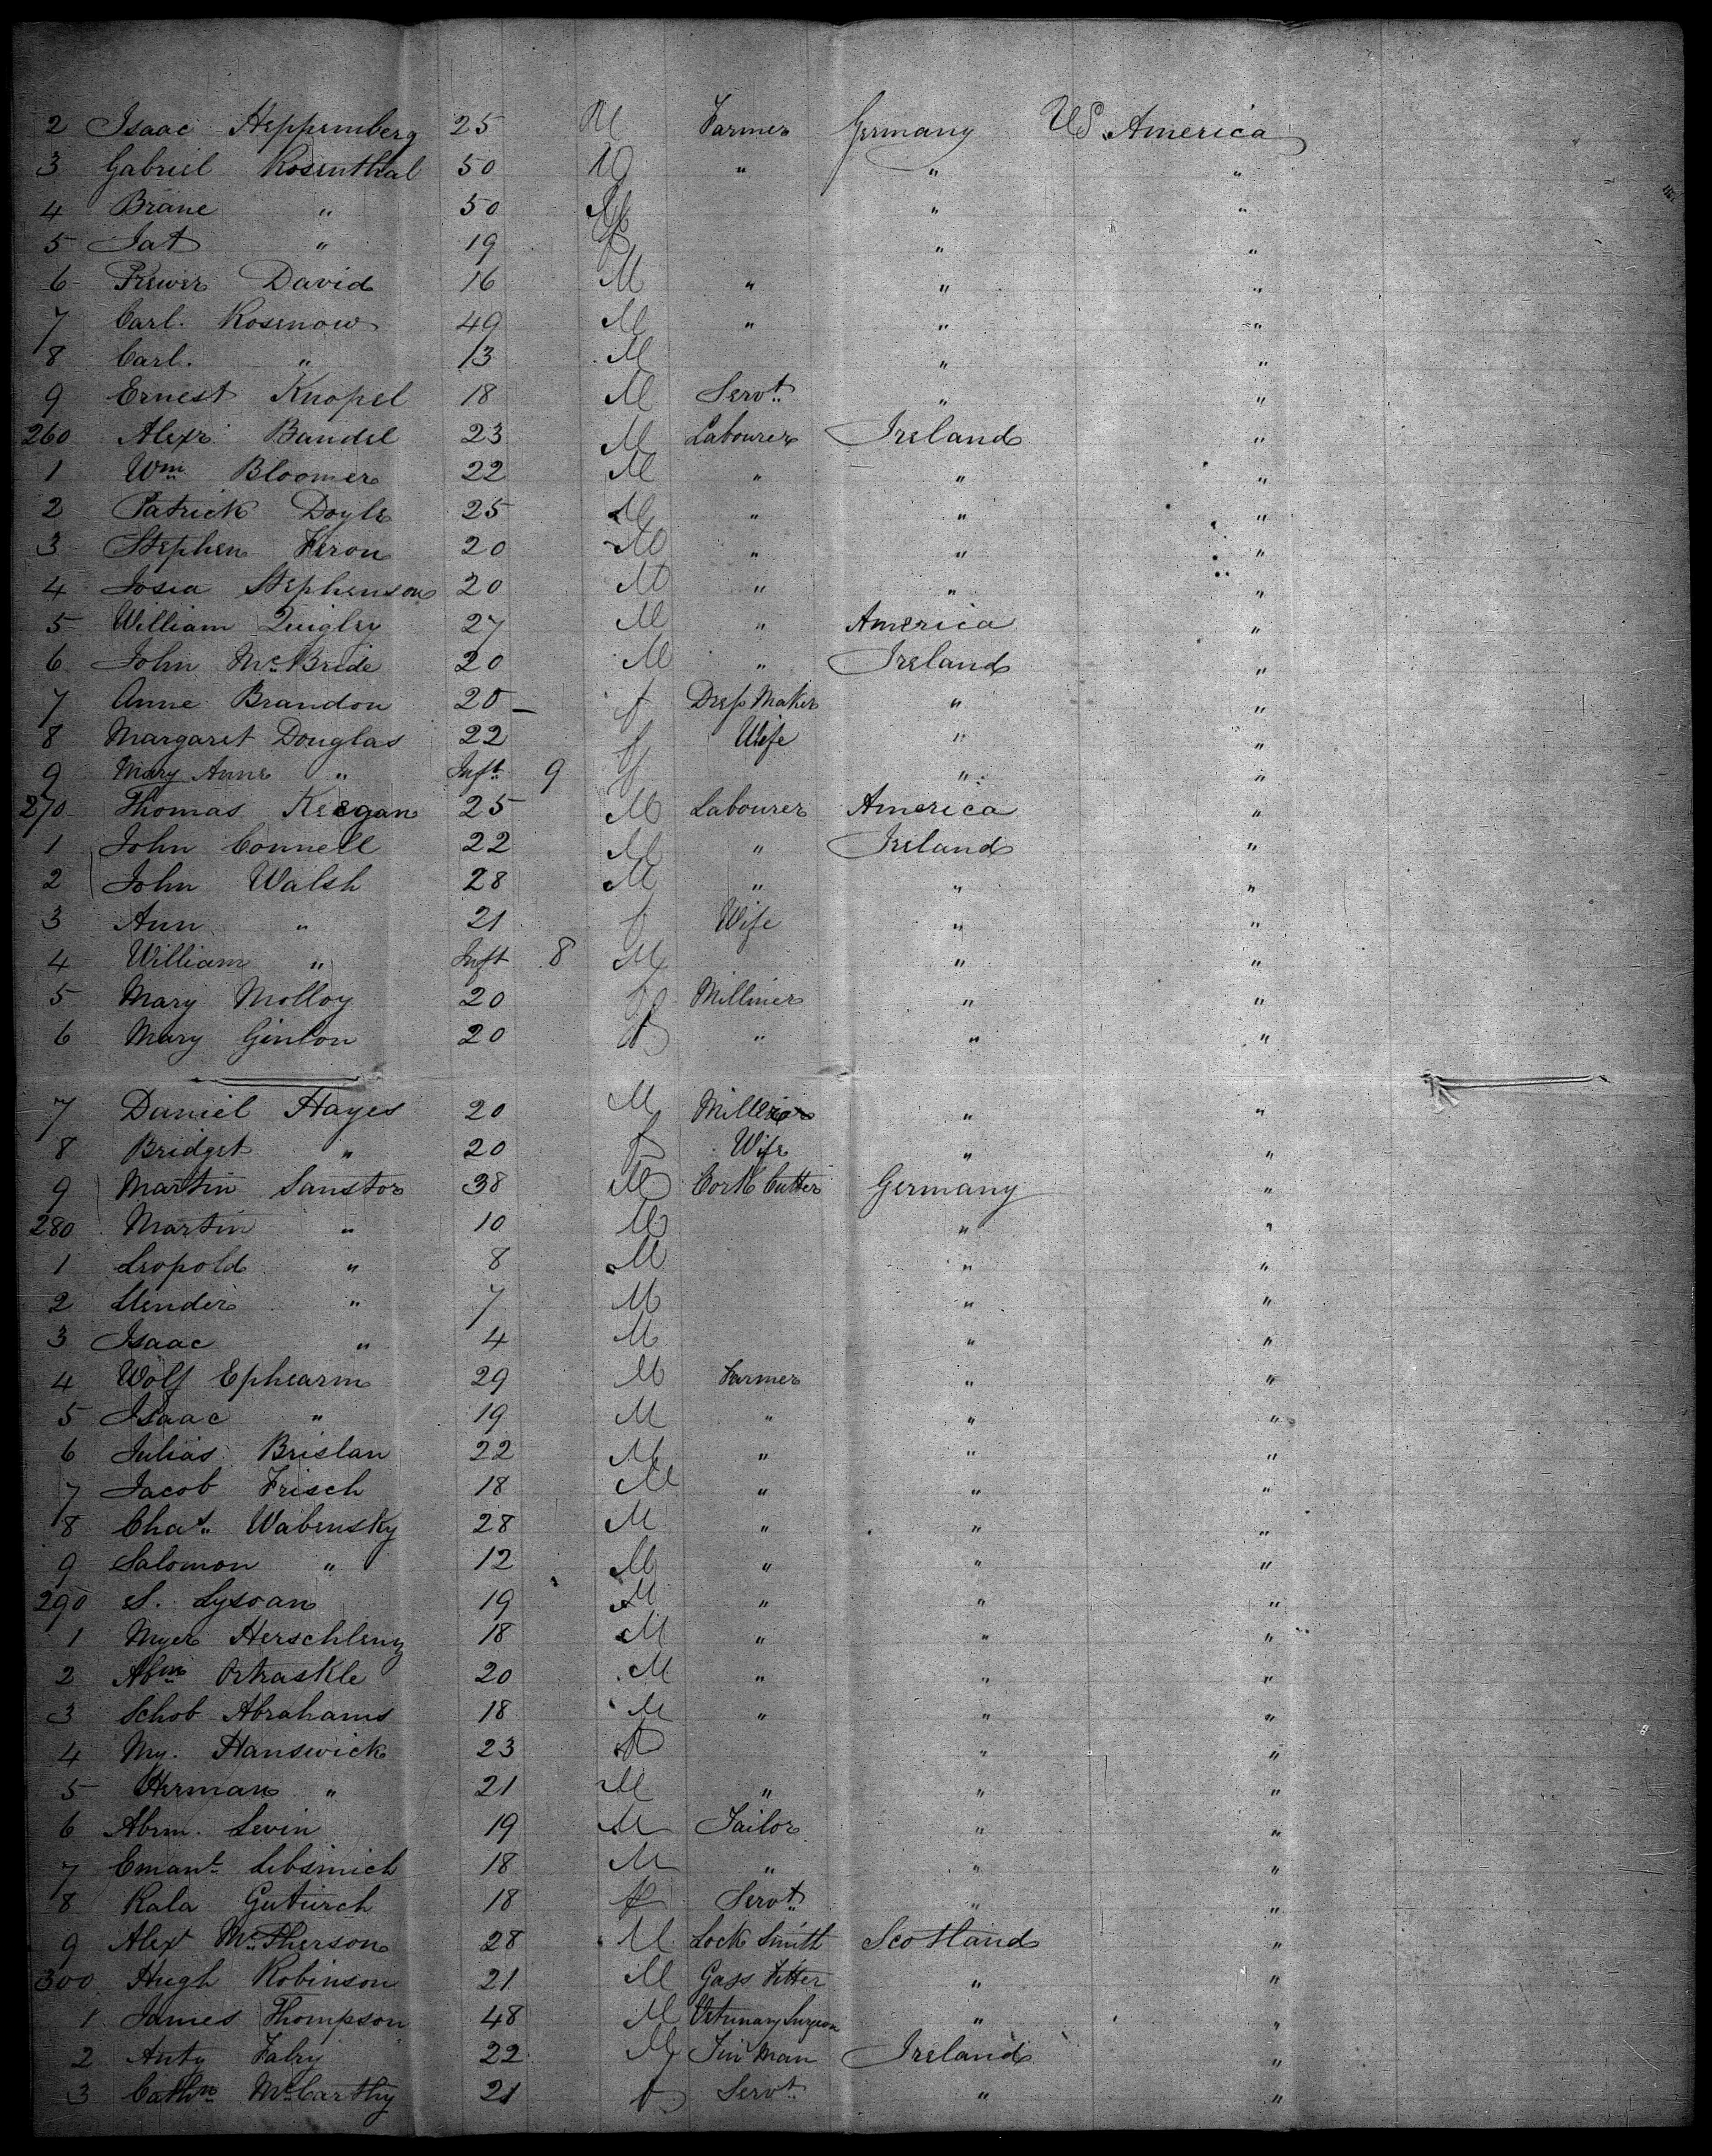 2 Isaac Heppemberg 25 M Farmer Germany US America
3 Gabriel Rosenthal 50 M " " "
4 Brane " 50 " "
5 Jat " 19 f " "
6 Prewer David 16 M " " "
7 Carl. Rosenow 49 M " " "
8 Carl. " 13 M " "
9 Ernest Knopel 18 M Servt. " "
260 Alexr. Bandel 23 M Labourer Ireland "
1 Wm. Bloomer 22 M " " "
2 Patrick Doyle 25 M " " "
3 Stephen Feron 20 M " " "
4 Josia Stephenson 20 M " " "
5 William Quigley 27 M " America "
6 John McBride 20 M " Ireland "
7 Anne Brandon 20 f Dress Maker " "
8 Margaret Douglas 22 f Wife " "
9 Mary Anne " Inft. 9 f " "
270 Thomas Keegan 25 M Labourer America "
1 John Connell 22 M " Ireland "
2 John Walsh 28 M " " "
3 Ann " 21 f Wife " "
4 William " Inft 8 M " "
5 Mary Molloy 20 f Milliner " "
6 Mary Ginlon 20 f " " "
7 Daniel Hayes 20 M " "
8 Bridget " 20 f Wife " "
9 Martin Sanstor 38 M Cork Cutter Germany "
280 Martin " 10 M " "
1 Leopold " 8 M " "
2 " 7 M " "
3 Isaac " 4 M " "
4 Wolf Ephearm 29 M Farmer " "
5 Isaac " 19 M " " "
6 Julias Brislan 22 M " " "
7 Jacob Frisch 18 M " " "
8 Chas. Wabensky 28 M " " "
9 Salomon " 12 M " " "
290 S. Lysoan 19 M " " "
1 Myer Herschleng 18 M " " "
2 Abm. Ortraskle 20 M " " "
3 Schob Abrahams 18 M " " "
4 My. Hanswick 23 f " "
5 Herman " 21 M " " "
6 Abrm. Levin 19 M Tailor " "
7 Emanl. Libsmich 18 M " " "
8 Rala Guturch 18 f Servt. " "
9 Alexr McPherson 28 M Lock Smith Scotland "
300 Hugh Robinson 21 M Gass Fitter " "
1 James Thompson 48 M Veterinary Surgeon " "
2 Anty Falry 22 M Tin Man Ireland "
3 Cathn. McCarthy 21 f Servt. " "